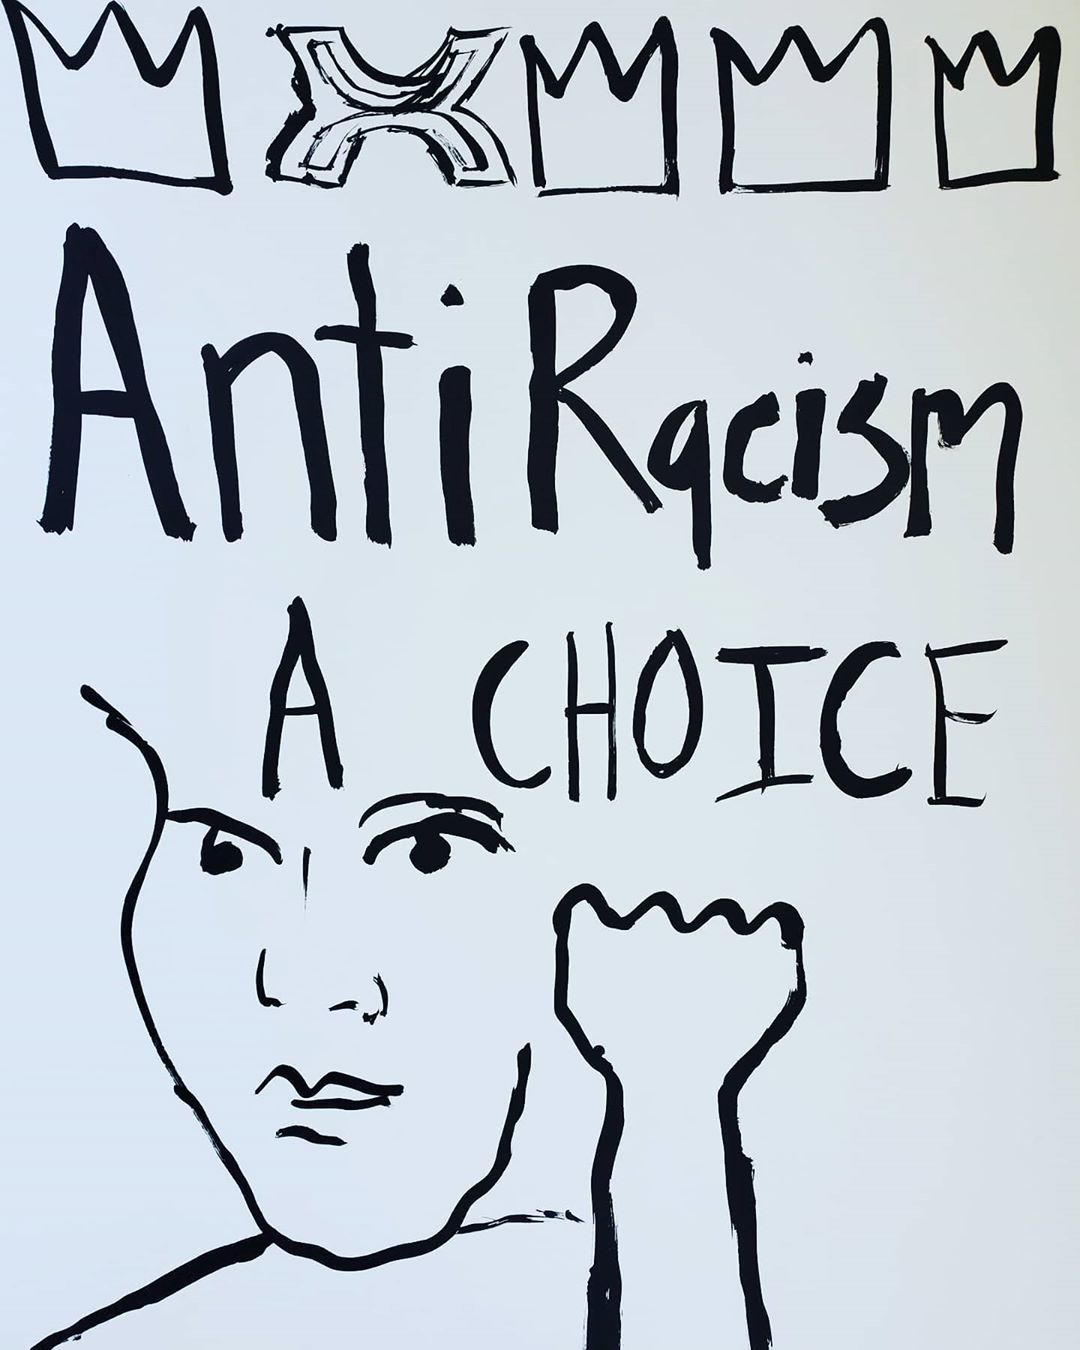 Anti Racism
A CHOICE